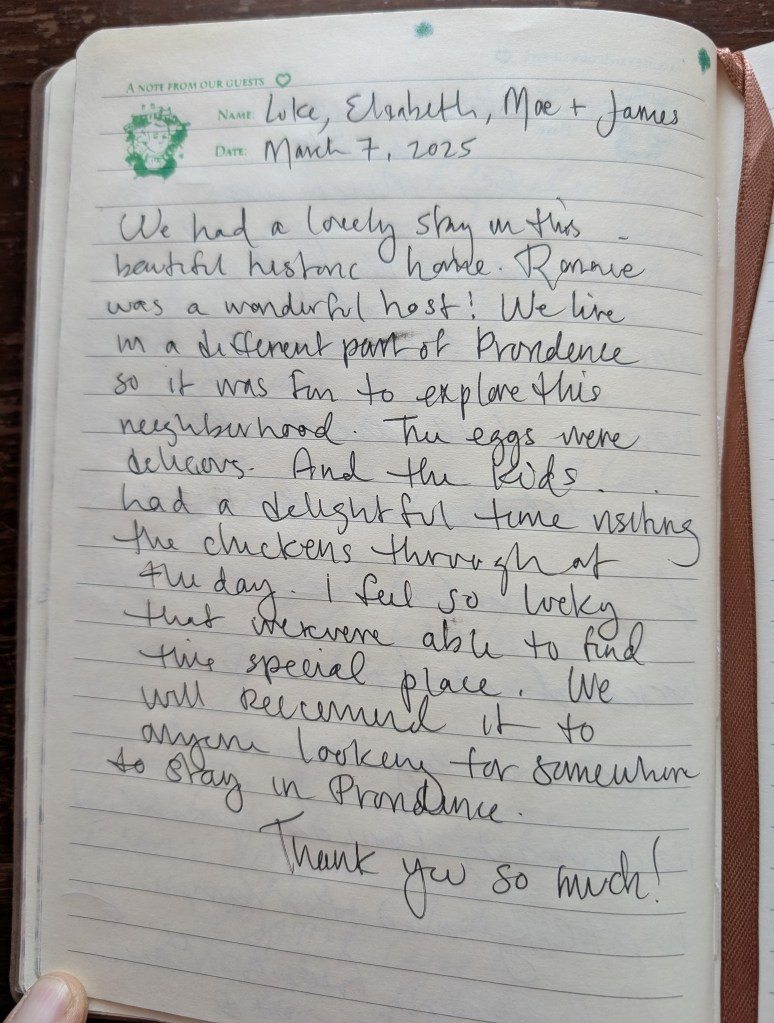 A NOTE FROM OUR GUESTS
NAME: Luke, Elizabeth, Mae + James
DATE: March 7, 2025
We had a lovely stay in this
beautiful historic home. Ronnie
was a wonderful host! We live
in a different part of Providence
so it was fun to explore this
neighborhood. The eggs were
delicious. And the kids
had a delightful time visiting
the chickens throughout
the day. I feel so lucky
that we were able to find
this special place. We
will reccomend it to
anyone looking for somewhere
to stay in Providence.
Thank you so much!